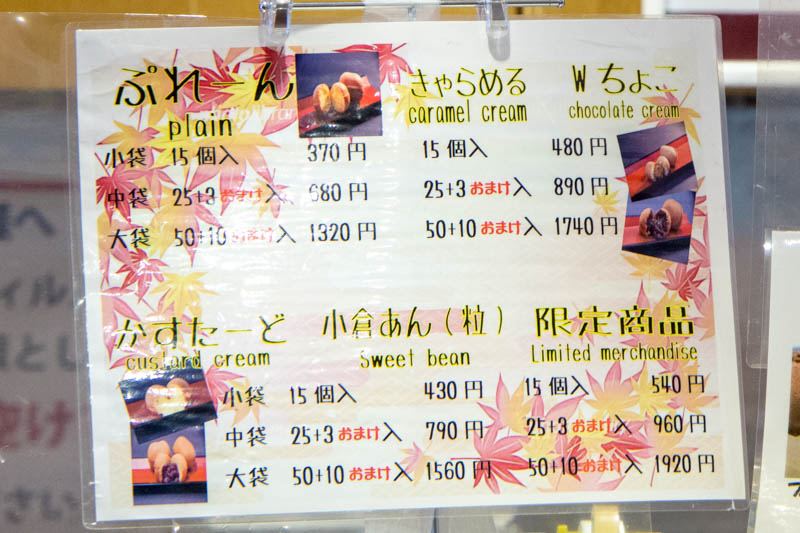 ぷれーん
plain
小袋 15個入 370円
中袋 25+3おまけ入 680円
大袋 50+10おまけ入 1320円
きゃらめる Wちょこ
caramel cream chocolate cream
15個入 480円
25+3おまけ入 890円
50+10おまけ入 1740円
かすたーど 小倉あん(粒)
custard cream Sweet bean
小袋 15個入 430円
中袋 25+3おまけ入 790円
大袋 50+10おまけ入 1560円
限定商品
Limited merchandise
15個入 540円
25+3おまけ入 960円
50+10おまけ入 1920円